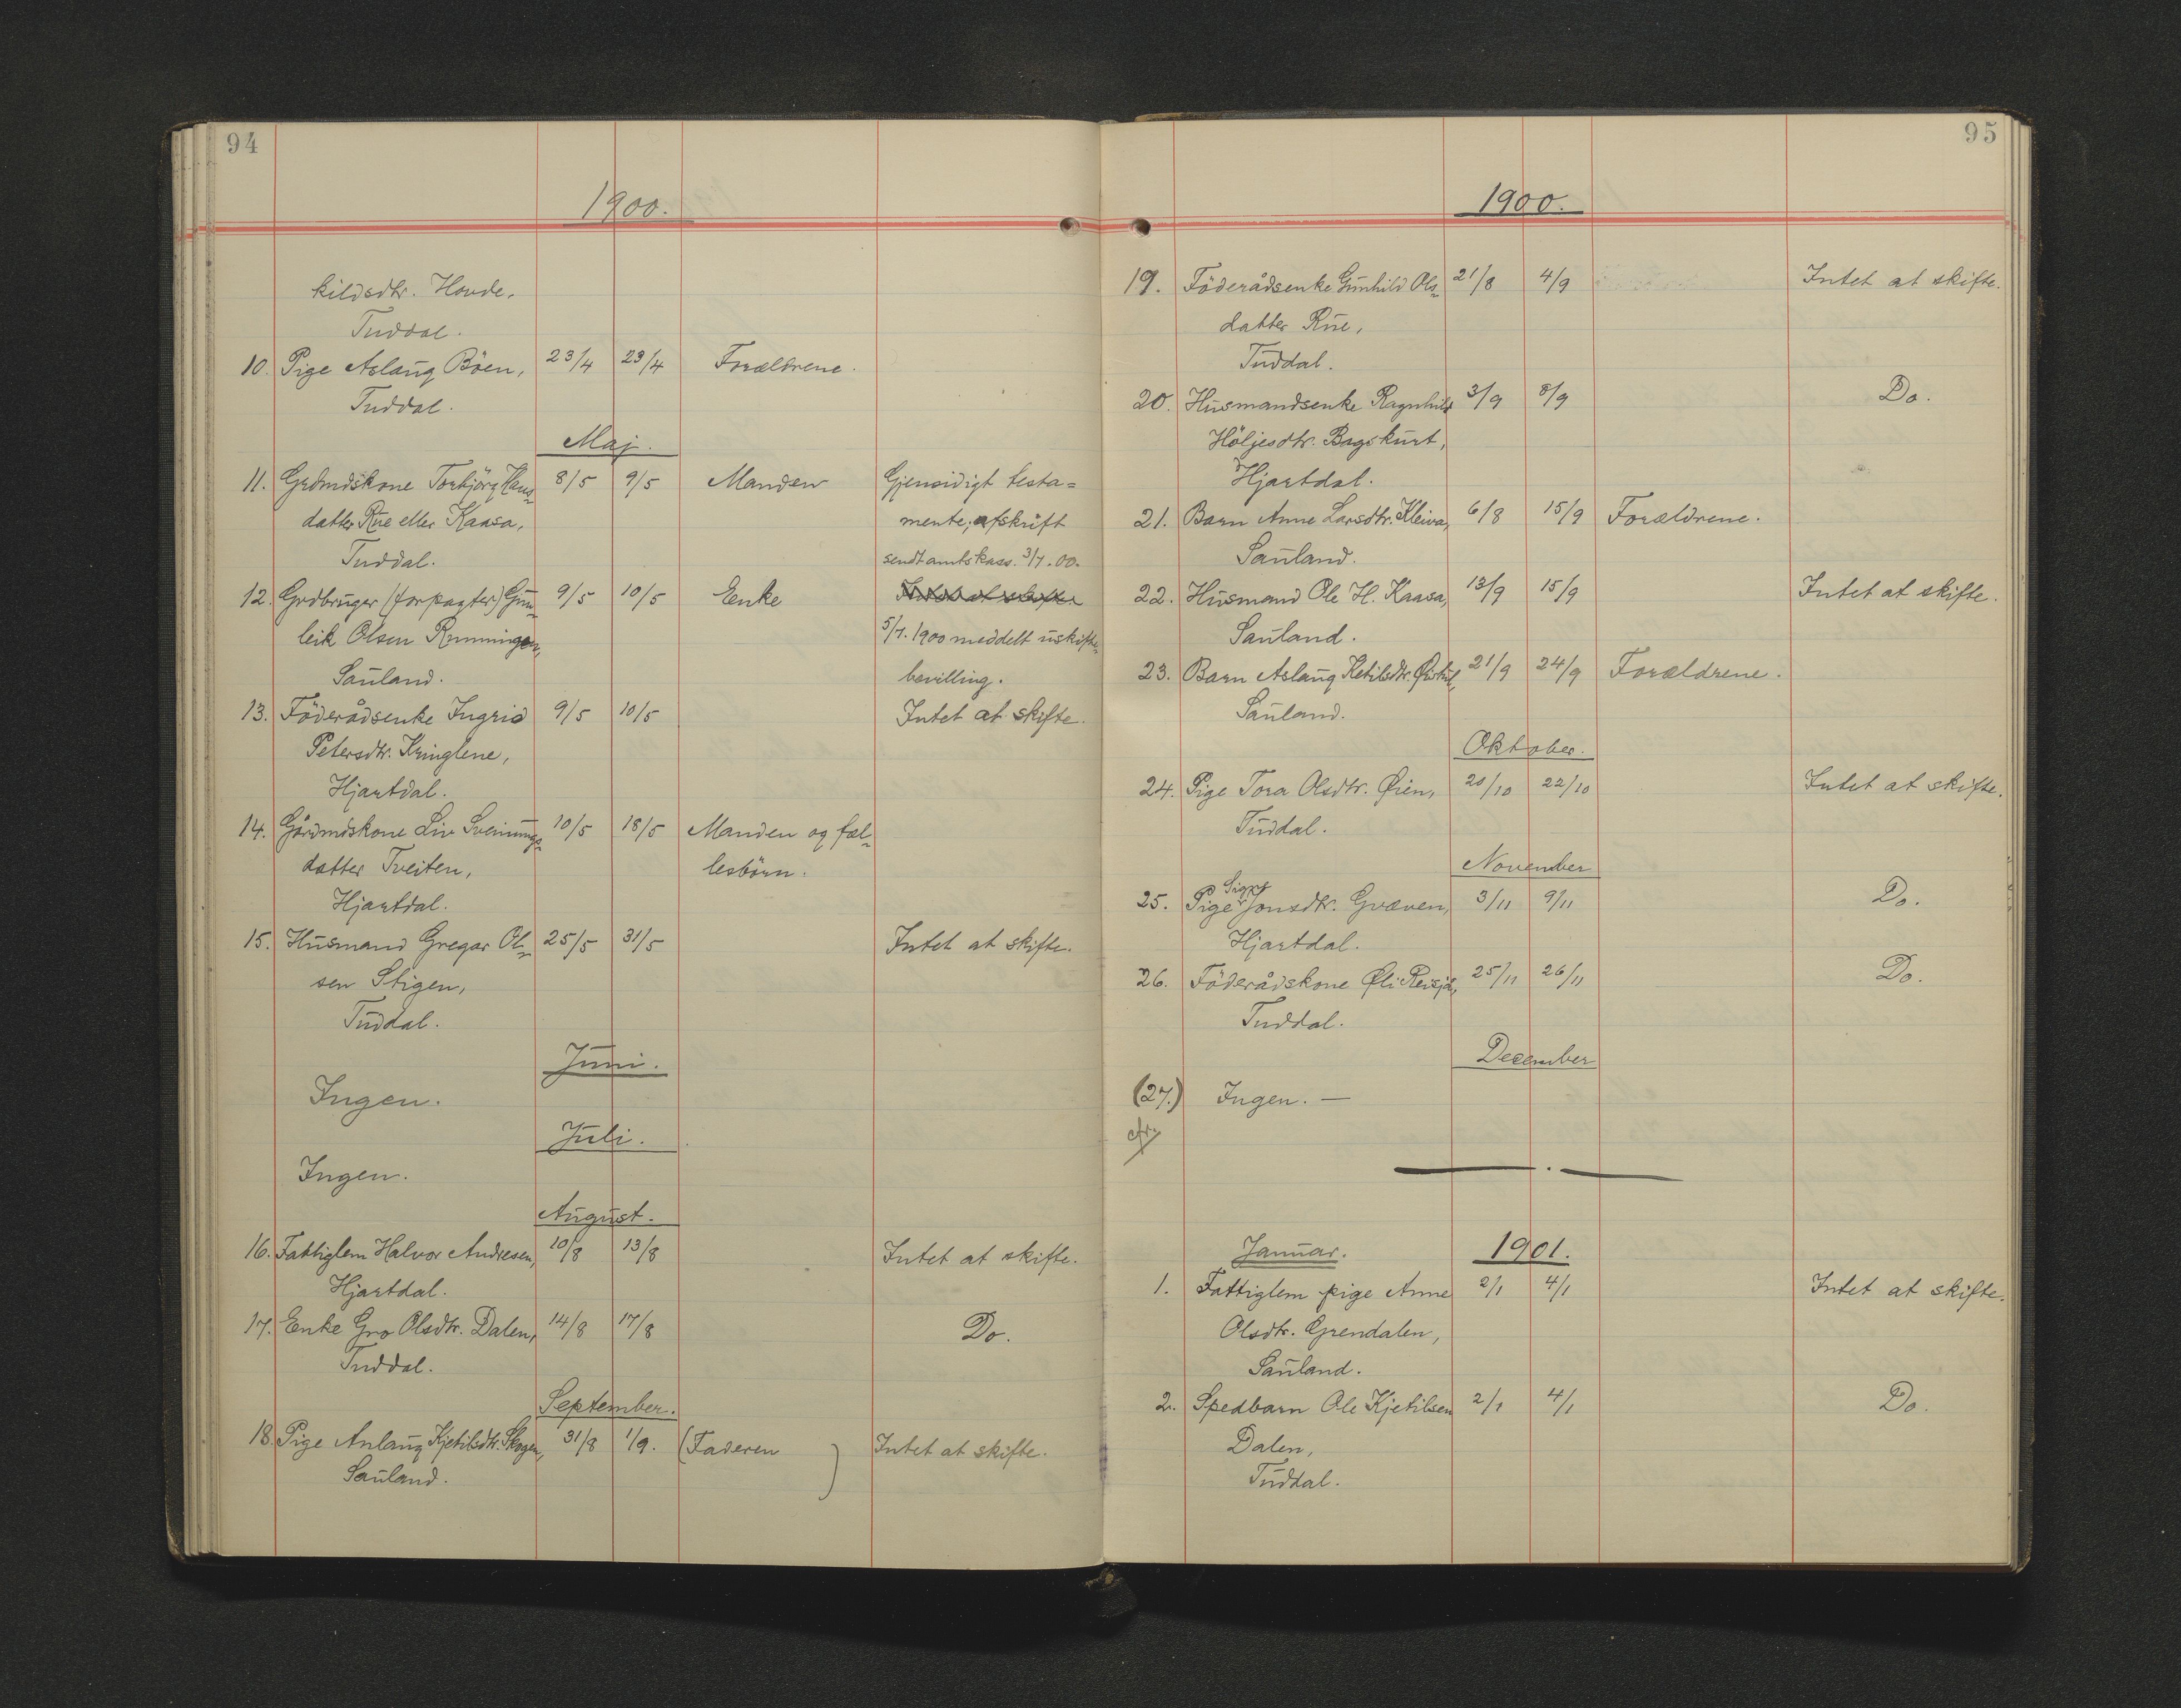 94
1900.
kildsdtr. Hovde,
Tuddal.
10. Pige Aslaug Böen, 23/4 23/4 Forældrene.
Tuddal.
Maj.
11. Grdmdskone Torbjörg Hans- 8/5 9/5 Manden Gjensidigt testa=
datter Rue eller Kaasa, mente, afskrift
Tuddal. sendt amtskass. 3/7.00.
12. Grdbruger (forpagter) Gun- 9/5 10/5 Enke Intet at skifte
leik Olsen Rmmingen, 5/7. 1900 meddelt uskifte-
Sauland. bevilling.
13. Föderådsenke Ingrid 9/5 10/5 Intet at skifte.
Petersdtr. Kringlene,
Hjartdal.
14. Gårdmdskone Liv Sveinungs- 10/5 18/5 Manden og fæl-
datter Tveiten, lesbörn.
Hjartdal.
15. Husmand Gregar Ol- 25/5 31/5 Intet at skifte.
sen Stigen,
Tuddal.
Juni.
Ingen.
Juli.
Ingen.
August.
16. Fattiglem Halvor Andresen, 10/8 13/8 Intet at skifte.
Hjartdal.
17. Enke Gro Olsdtr. Dalen, 14/8 17/8 Do.
Tuddal.
September.
18. Pige Anlaug Kjetilsdtr. Skogen, 31/8 1/9. (Faderen ) Intet at skifte.
Sauland.
95
1900.
19. Föderådsenke Gunhild Ols- 21/8 4/9 Intet at skifte.
datter Rue,
Tuddal.
20. Husmandsenke Ragnhild 3/9 8/9 Do.
Höljesdtr. Bagskurt,
Hjartdal.
21. Barn Anne Larsdtr. Kleiva, 6/8 15/9 Forældrene.
Sauland.
22. Husmand Ole H. Kaasa, 13/9 15/9 Intet at skifte.
Sauland.
23. Barn Aslaug Ketilsdtr. 21/9 24/9 Forældrene.
Sauland.
Oktober.
24. Pige Tora Olsdtr. Øien, 20/10 22/10 Intet at skifte.
Tuddal.
November
25. Pige Signe Jonsdtr. Gvæven, 3/11 9/11 Do.
Hjartdal.
26. Föderådskone Øli Reisjå, 25/11 26/11 Do.
Tuddal.
December
(27.) Ingen. —
cfr.
1901.
Januar.
1. Fattiglem pige Anne 2/1 4/1 Intet at skifte.
Olsdtr. Grendalen,
Sauland.
2. Spedbarn Ole Kjetilsen 2/1 4/1 Do.
Dalen,
Tuddal.